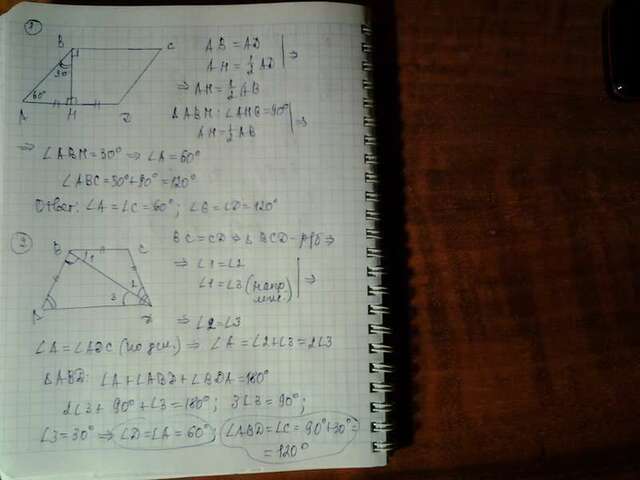 1
B C
30°
60°
A H D
AB = AD
AH = 1/2 AD | ⇒
⇒ AH = 1/2 AB
ΔABH: ∠AHB = 90°
AH = 1/2 AB | ⇒
⇒ ∠ABH = 30° ⇒ ∠A = 60°
∠ABC = 30° + 90° = 120°
Ответ: ∠A = ∠C = 60°; ∠B = ∠D = 120°
2
B C
1
2
3
A D
BC = CD ⇒ Δ BCD - р/б ⇒
⇒ ∠1 = ∠2
∠1 = ∠3 (накр | ⇒
⇒ ∠2 = ∠3
∠A = ∠ADC (по усл.) ⇒ ∠A = ∠2 + ∠3 = 2∠3
ΔABD: ∠A + ∠ABD + ∠BDA = 180°
2∠3 + 90° + ∠3 = 180°; 3∠3 = 90°;
∠3 = 30° ⇒ ∠D = ∠A = 60°; ∠ABD = ∠C = 90° + 30° =
= 120°